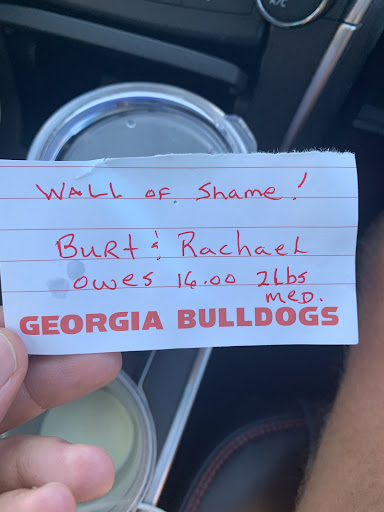 WALL OF Shame!
Burt & Rachael
owes 16.00 2Lbs
MED.
GEORGIA BULLDOGS
A/C